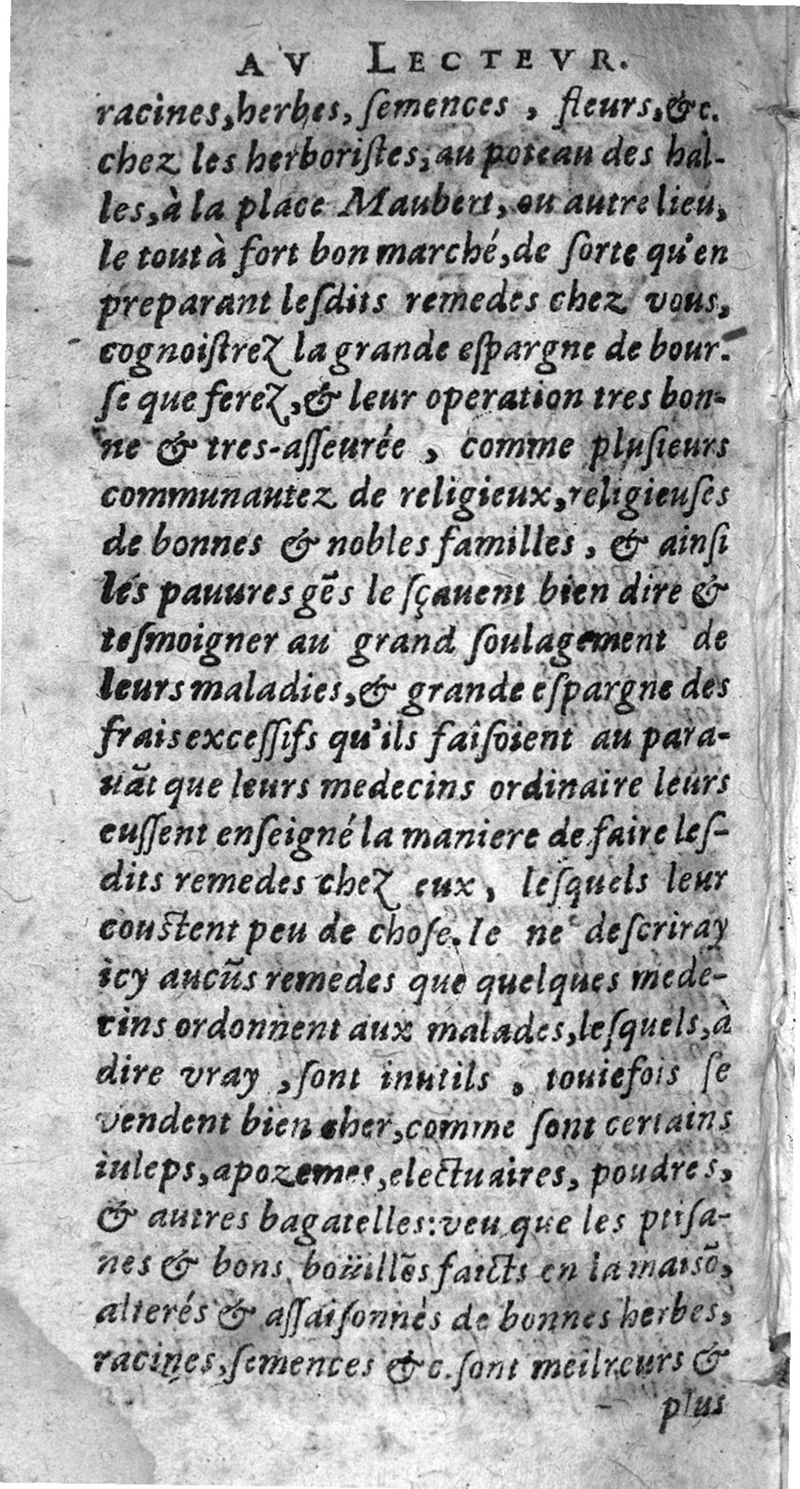 AV LECTEVR.
racines, herbes, ſemences , fleurs, &c.
chez les herboriſtes, au poteau des hal-
les, à la place Maubert, ou autre lieu,
le tout à fort bon marché, de ſorte qu'en
preparant leſdits remedes chez vous,
cognoiſtrez la grande eſpargne de bour-
ſe que ferez, & leur operation tres bon-
ne & tres-aſſeurée , comme pluſieurs
communautez de religieux, religieuſes
de bonnes & nobles familles , & ainſi
les pauures gẽs le ſçauent bien dire &
teſmoigner au grand ſoulagement de
leurs maladies, & grande eſpargne des
frais exceſſifs qu'ils faiſoient au para-
uãt que leurs medecins ordinaire leurs
euſſent enſeigné la maniere de faire leſ-
dits remedes chez eux , leſquels leur
couſtent peu de choſe. Ie ne deſcriray
icy aucũs remedes que quelques mede-
cins ordonnent aux malades, leſquels, à
dire vray , ſont inutils , toutefois ſe
vendent bien cher, comme ſont certains
iuleps, apozemes, electuaires, poudres,
& autres bagatelles: veu que les ptiſa-
nes & bons boüillõs faicts en la maisõ,
alterés & aſſaiſonnés de bonnes herbes,
racines, ſemences &c. ſont meilreurs &
plus